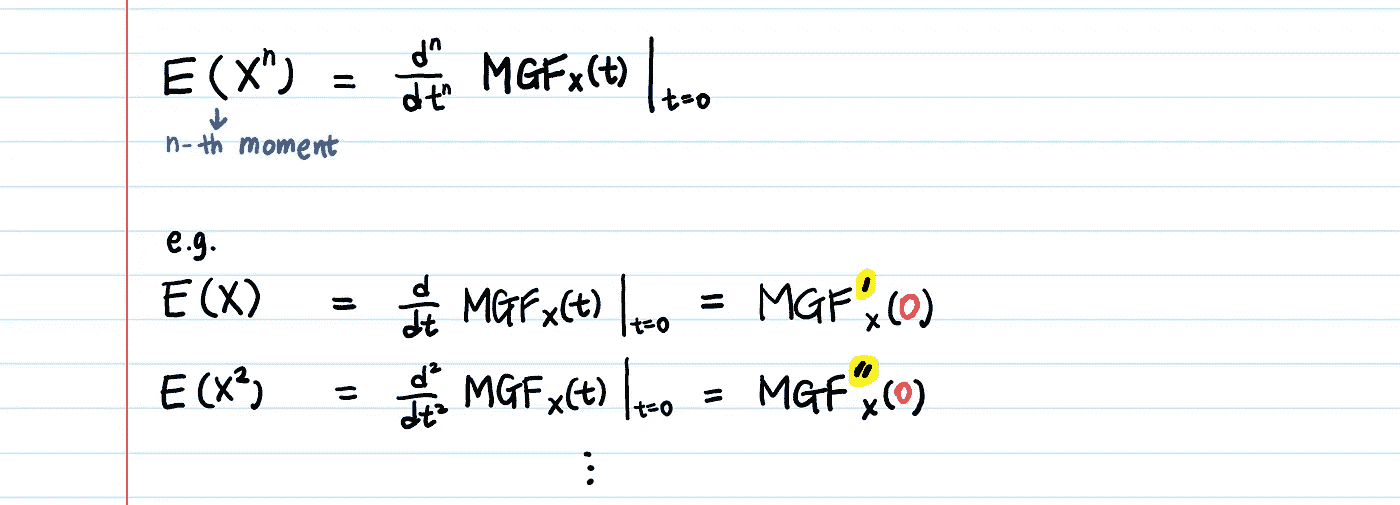 E(Xⁿ) = dⁿ/dtⁿ MGFₓ(t) |ₜ₌₀
n-th moment
e.g.
E(X) = d/dt MGFₓ(t) |ₜ₌₀ = MGF'ₓ(0)
E(X²) = d²/dt² MGFₓ(t) |ₜ₌₀ = MGF''ₓ(0)
⋮